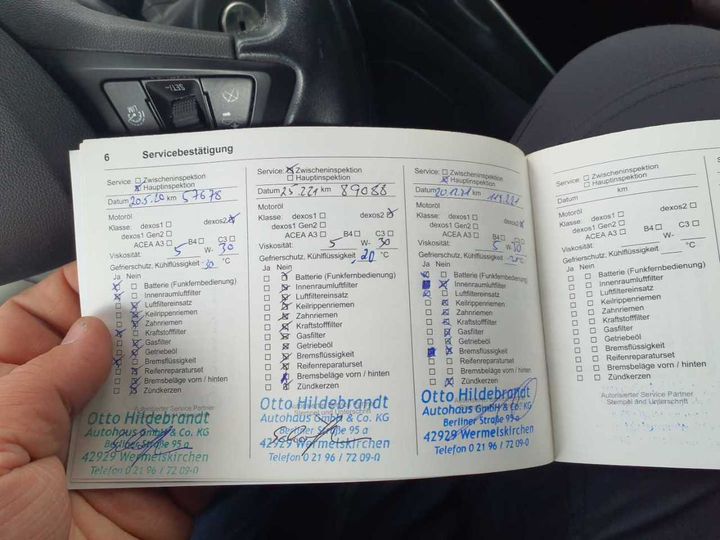 LIM
SET/-
6 Servicebestätigung
Service: Zwischeninspektion
Hauptinspektion
Datum 20.5.20 km 57678
Motoröl
Klasse: dexos1 dexos2
dexos1 Gen2
ACEA A3 B4 C3
Viskosität: 5 W- 30
Gefrierschutz, Kühlflüssigkeit -30 °C
Ja Nein
Batterie (Funkfernbedienung)
Innenraumluftfilter
Luftfiltereinsatz
Keilrippenriemen
Zahnriemen
Kraftstofffilter
Gasfilter
Getriebeöl
Bremsflüssigkeit
Reifenreparaturset
Bremsbeläge vorn / hinten
Zündkerzen
Autorisierter Service Partner
Otto Hildebrandt
Autohaus GmbH & Co. KG
Berliner Straße 95 a
42929 Wermelskirchen
Telefon 0 21 96 / 72 09-0
Service: Zwischeninspektion
Hauptinspektion
Datum 25.2.21 km 89088
Motoröl
Klasse: dexos1 dexos2
dexos1 Gen2
ACEA A3 B4 C3
Viskosität: 5 W- 30
Gefrierschutz, Kühlflüssigkeit -20 °C
Ja Nein
Batterie (Funkfernbedienung)
Innenraumluftfilter
Luftfiltereinsatz
Keilrippenriemen
Zahnriemen
Kraftstofffilter
Gasfilter
Getriebeöl
Bremsflüssigkeit
Reifenreparaturset
Bremsbeläge vorn / hinten
Zündkerzen
Stempel und Unterschrift
Otto Hildebrandt
Autohaus GmbH & Co. KG
Berliner Straße 95 a
42929 Wermelskirchen
Telefon 0 21 96 / 72 09-0
Service: Zwischeninspektion
Hauptinspektion
Datum km
Motoröl
Klasse: dexos1 dexos2
dexos1 Gen2
ACEA A3 B4 C3
Viskosität: 5 W- 30
Gefrierschutz, Kühlflüssigkeit °C
Ja Nein
Batterie (Funkfernbedienung)
Innenraumluftfilter
Luftfiltereinsatz
Keilrippenriemen
Zahnriemen
Kraftstofffilter
Gasfilter
Getriebeöl
Bremsflüssigkeit
Reifenreparaturset
Bremsbeläge vorn / hinten
Zündkerzen
Otto Hildebrandt
Autohaus GmbH & Co. KG
Berliner Straße 95 a
42929 Wermelskirchen
Telefon 0 21 96 / 72 09-0
Service: Zwischeninspektion
Hauptinspektion
Datum km
Motoröl
Klasse: dexos1 dexos2
dexos1 Gen2
ACEA A3 B4 C3
Viskosität: W-
Gefrierschutz, Kühlflüssigkeit °C
Ja Nein
Batterie (Funkfernbedienung)
Innenraumluftfilter
Luftfiltereinsatz
Keilrippenriemen
Zahnriemen
Kraftstofffilter
Gasfilter
Getriebeöl
Bremsflüssigkeit
Reifenreparaturset
Bremsbeläge vorn / hinten
Zündkerzen
Autorisierter Service Partner
Stempel und Unterschrift